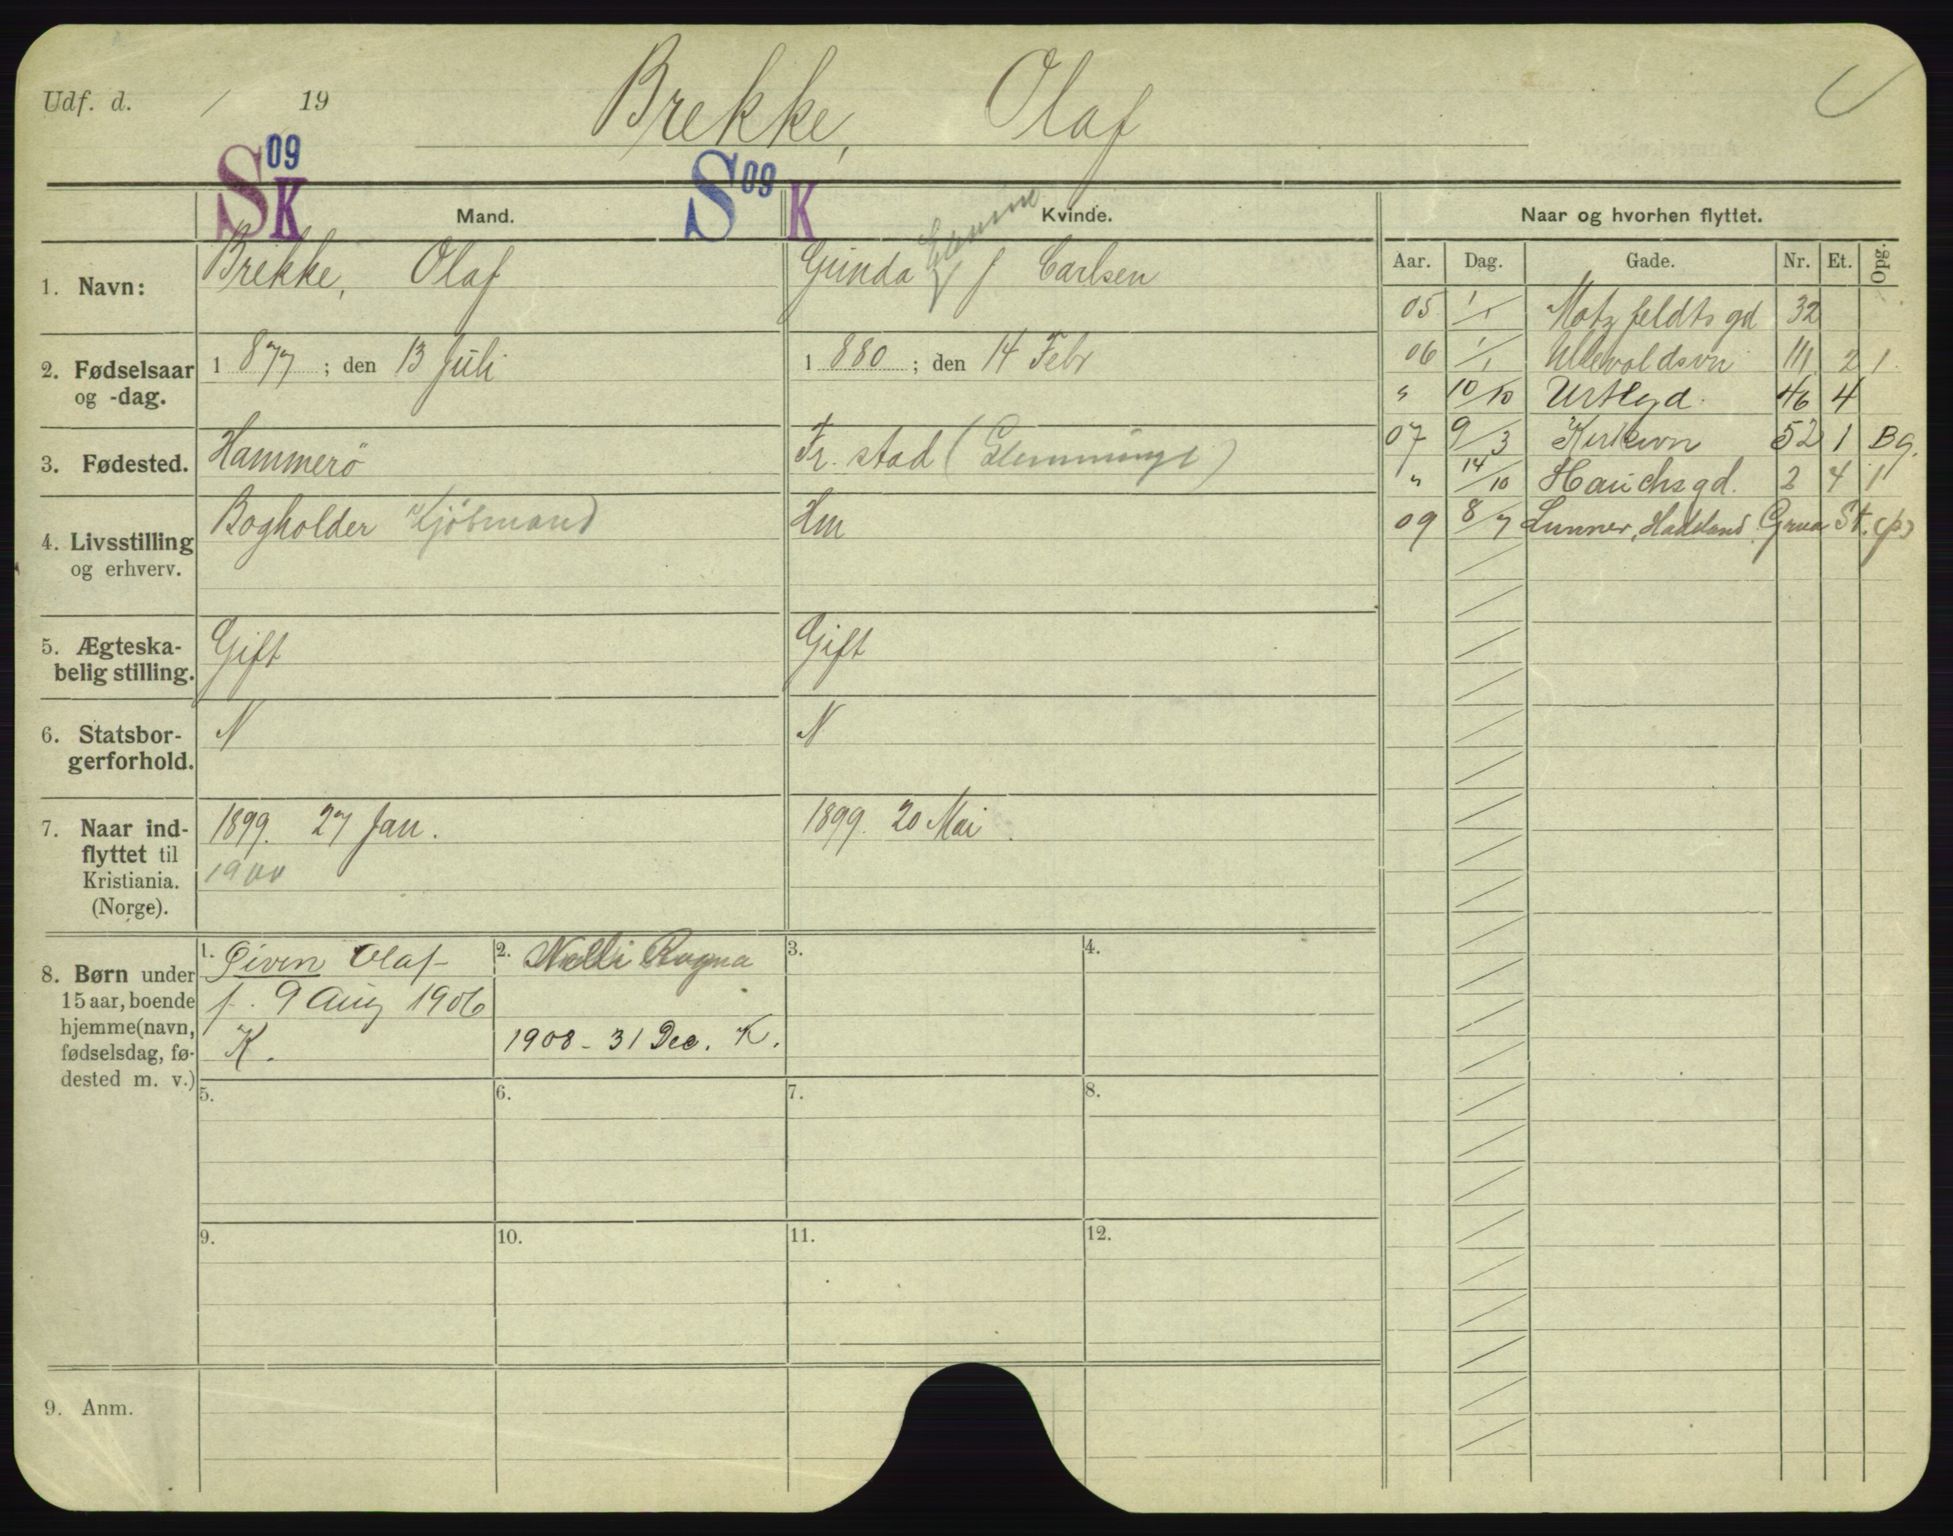 Udf. d. / 19
Brekke, Olaf
S 09 K
S 09 K
Mand.
Kvinde.
Naar og hvorhen flyttet.
Aar. Dag. Gade. Nr. Et. Opg.
1. Navn: Brekke, Olaf
Gunda f Carlsen
2. Fødselsaar og -dag. 1877; den 13 Juli
1880; den 14 Febr
3. Fødested. Hammerö
Fr. stad (Glemminge)
4. Livsstilling og erhverv. Bogholder Kjöbmand
Hm
5. Ægteska-
belig stilling. Gift
Gift
6. Statsbor-
gerforhold. N
N
7. Naar ind-
flyttet til
Kristiania.
(Norge).
1899. 27 Jan.
1900
1899. 20 Mai
8. Børn under
15 aar, boende
hjemme (navn,
fødselsdag, fø-
dested m. v.)
1. Olaf
f. 9 Aug 1906
K.
2. Nelli Ragna
1908 - 31 Dec. K.
3.
4.
5.
6.
7.
8.
9.
10.
11.
12.
9. Anm.
05 1/1 Motzfeldts gd 32
06 1/1 Ullevoldsvn 111 2 1
" 10/10 Urtegd. 46 4
07 9/3 Kirkevn 52 1 Bg.
" 14/10 Hauchsgd. 2 4 1
09 8/7 Lunner, Hadeland Grua St. (p)